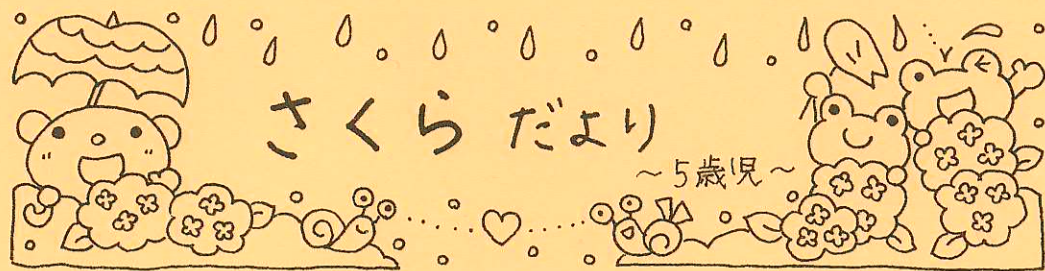 さくらだより
～5歳児～